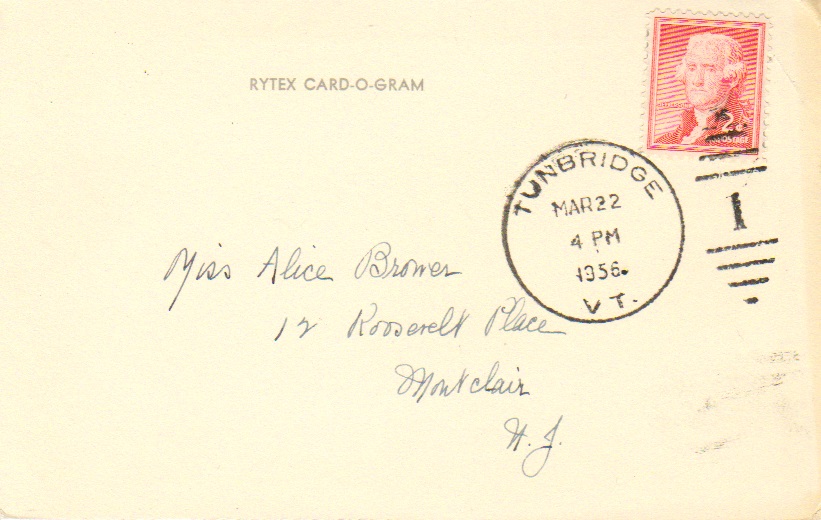 RYTEX CARD-O-GRAM
2¢
POSTAGE
TUNBRIDGE
MAR 22
4 PM
1956
VT.
1
Miss Alice Brower
12 Roosevelt Place
Montclair
N. J.